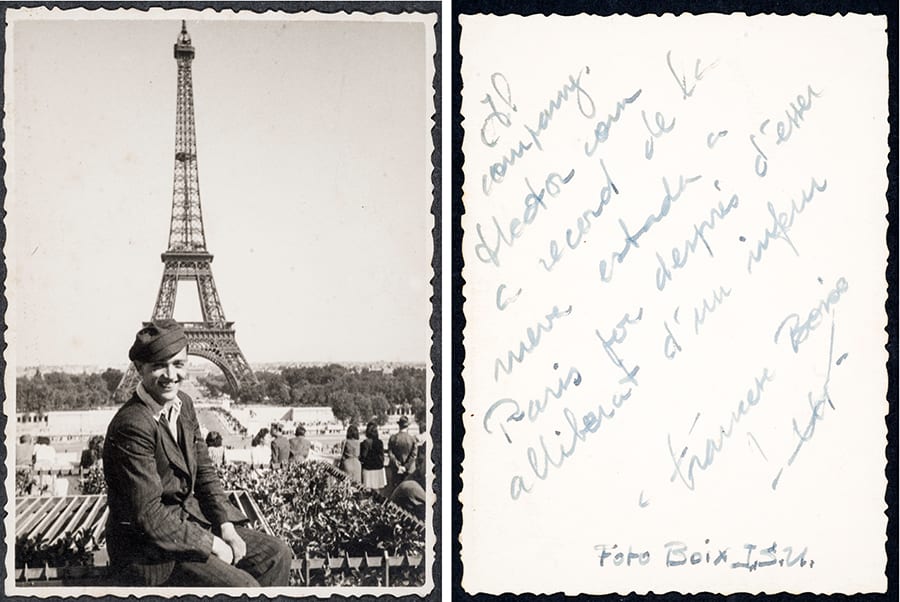 Al
company
Hector com
a record de la
meva estada a
Paris for després d'esser
alliberat d'un infern
Francesc Boix
Foto Boix J.S.U.